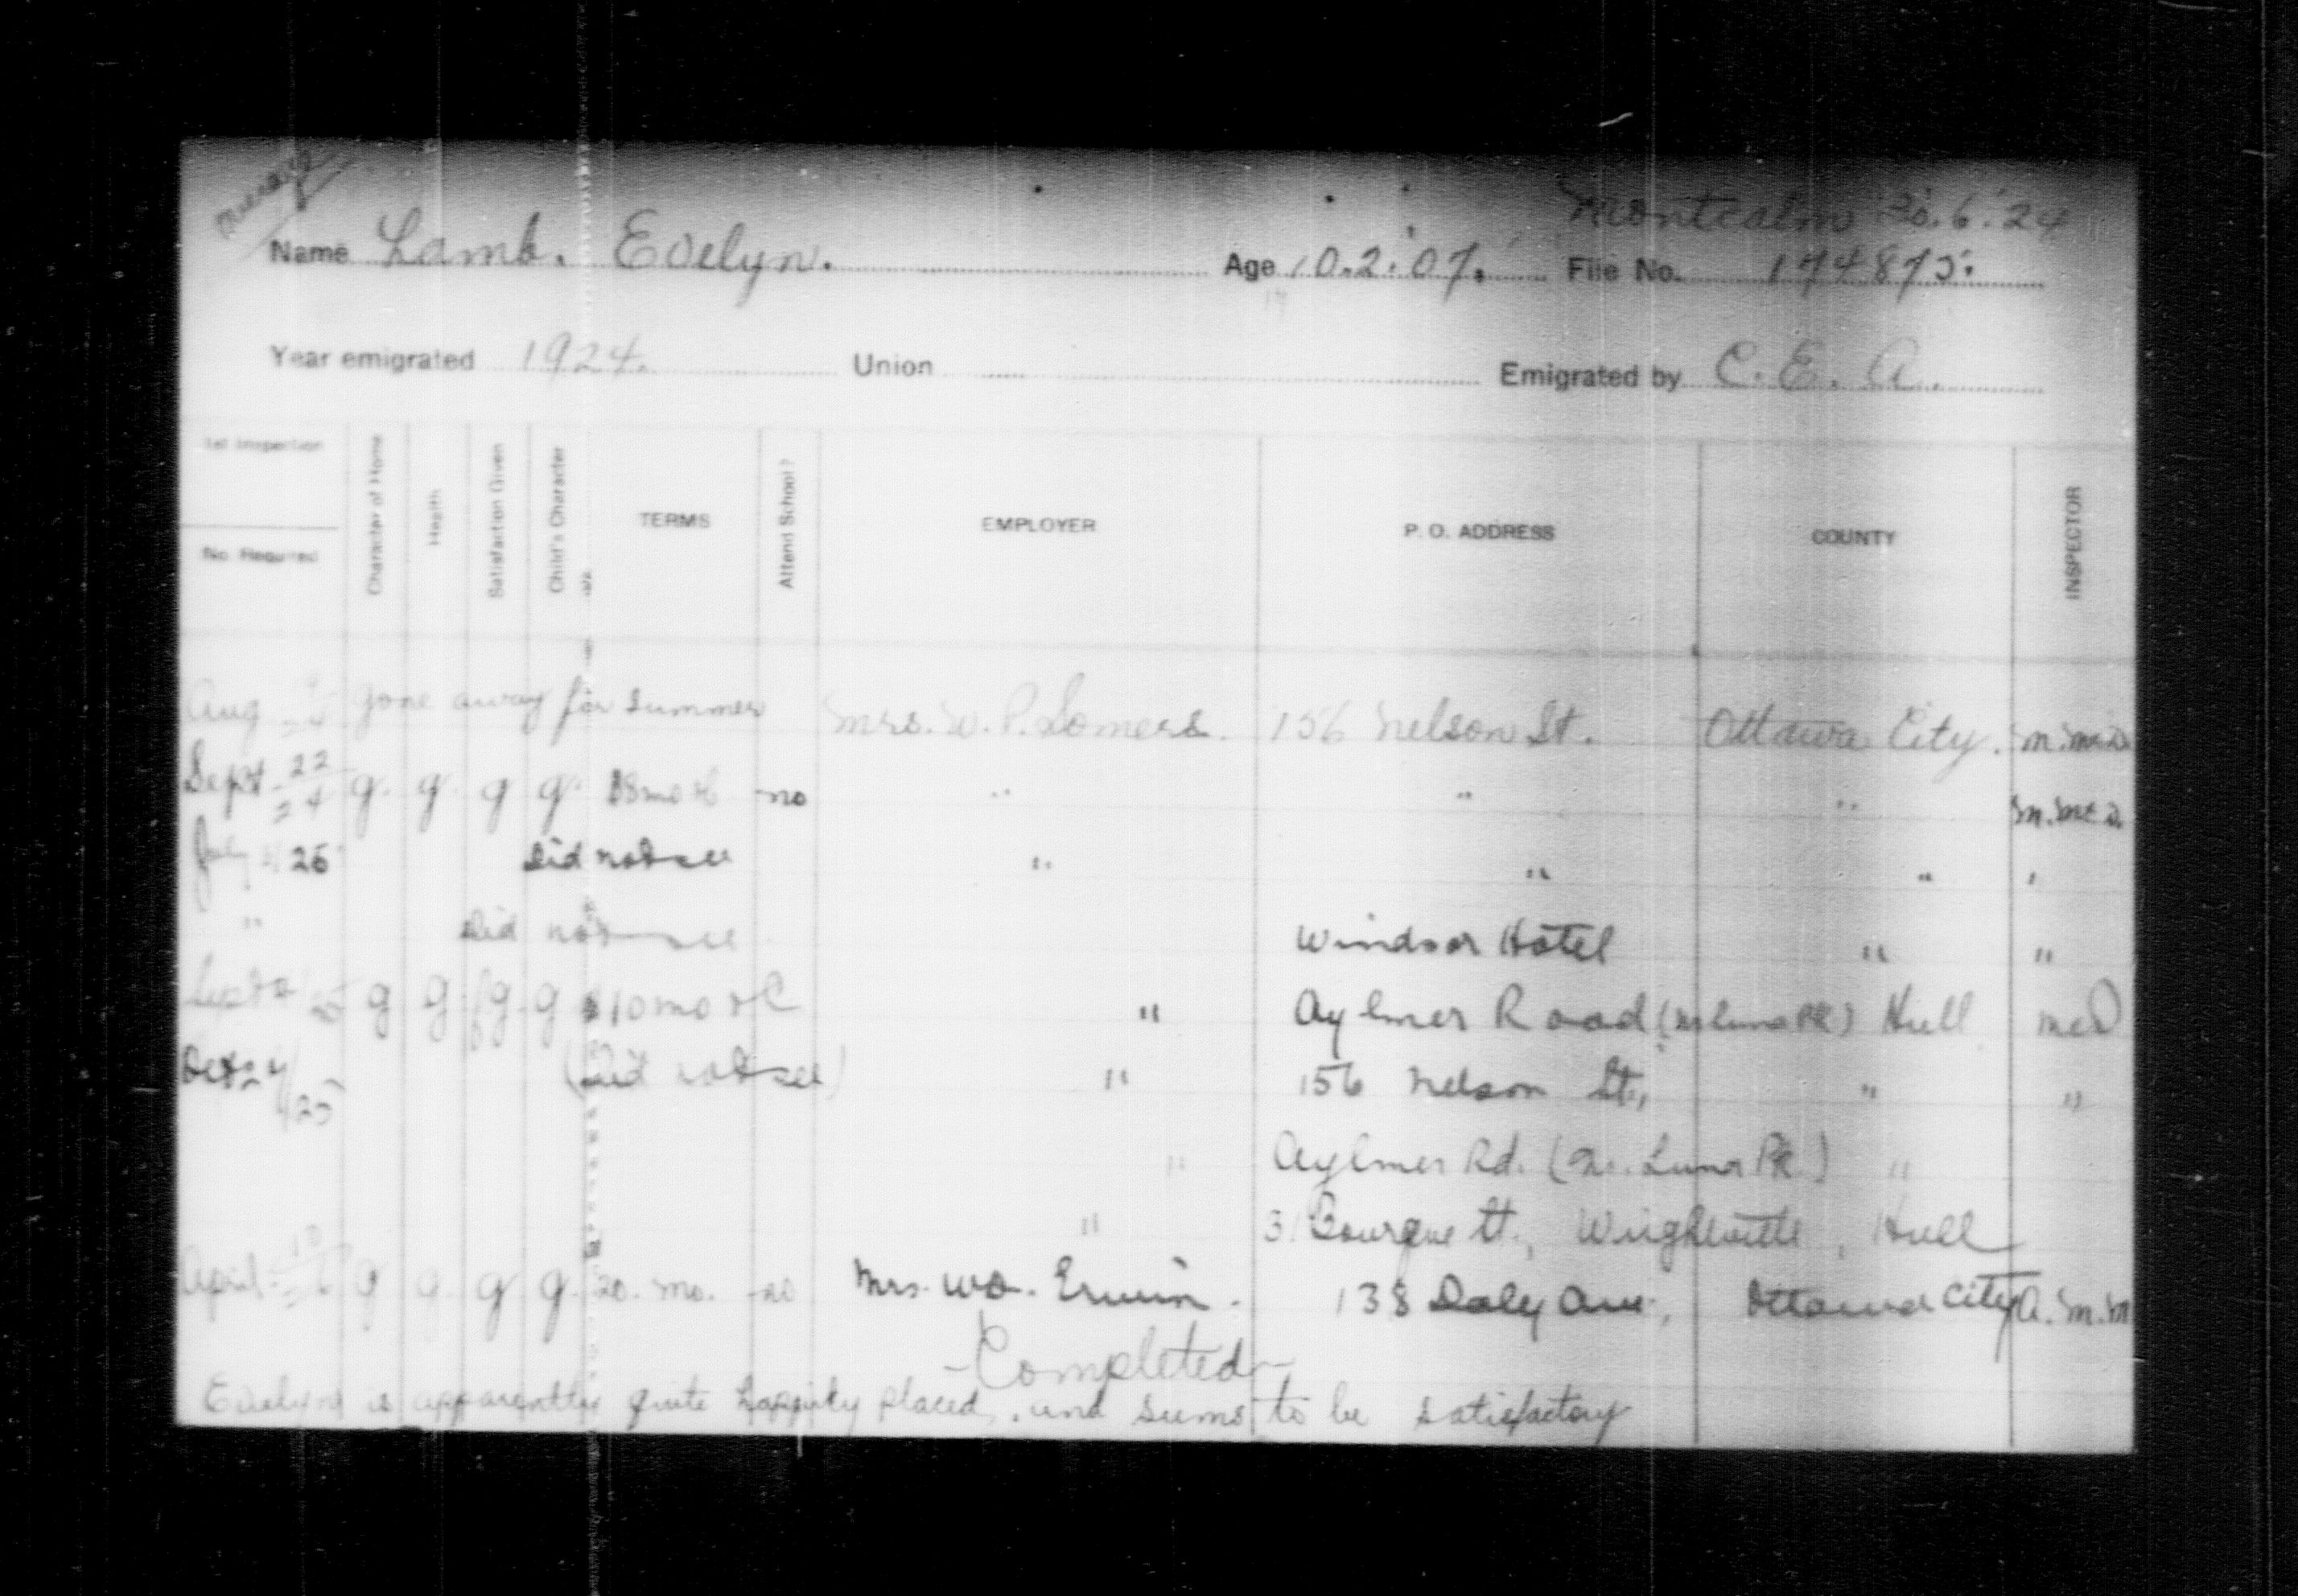 Montcalm 20.6.24
Name Lamb. Evelyn. Age 10.2.07. File No. 174875.
17
Year emigrated 1924. Union Emigrated by C. E. A.
1st Inspection
No. Required
Character of Home
Health
Satisfaction Given
Child's Character
TERMS
Attend School?
EMPLOYER
P. O. ADDRESS
COUNTY
INSPECTOR
Aug 24 gone away for summer Mrs. W. P. Somers. 156 Nelson St. Ottawa City.
Sept 22 24 g. g. g g. no " " "
July 25 did not see " " " "
" did not see Windsor Hotel " "
Sept 25 g g g. g $10 mo & C " Aylmer Road ( Luna Pk) Hull McD
Oct 24/25 (did not see) " 156 Nelson St., " "
" Aylmer Rd. (nr. Luna Pk.) "
" 31 Bourque St., Wrightville, Hull
April g g. g g. 20. mo. no Mrs. Wo. Erwin. 138 Daly Ave., Ottawa City A. M. M
-Completed-
Evelyn is apparently quite happily placed, and seems to be satisfactory